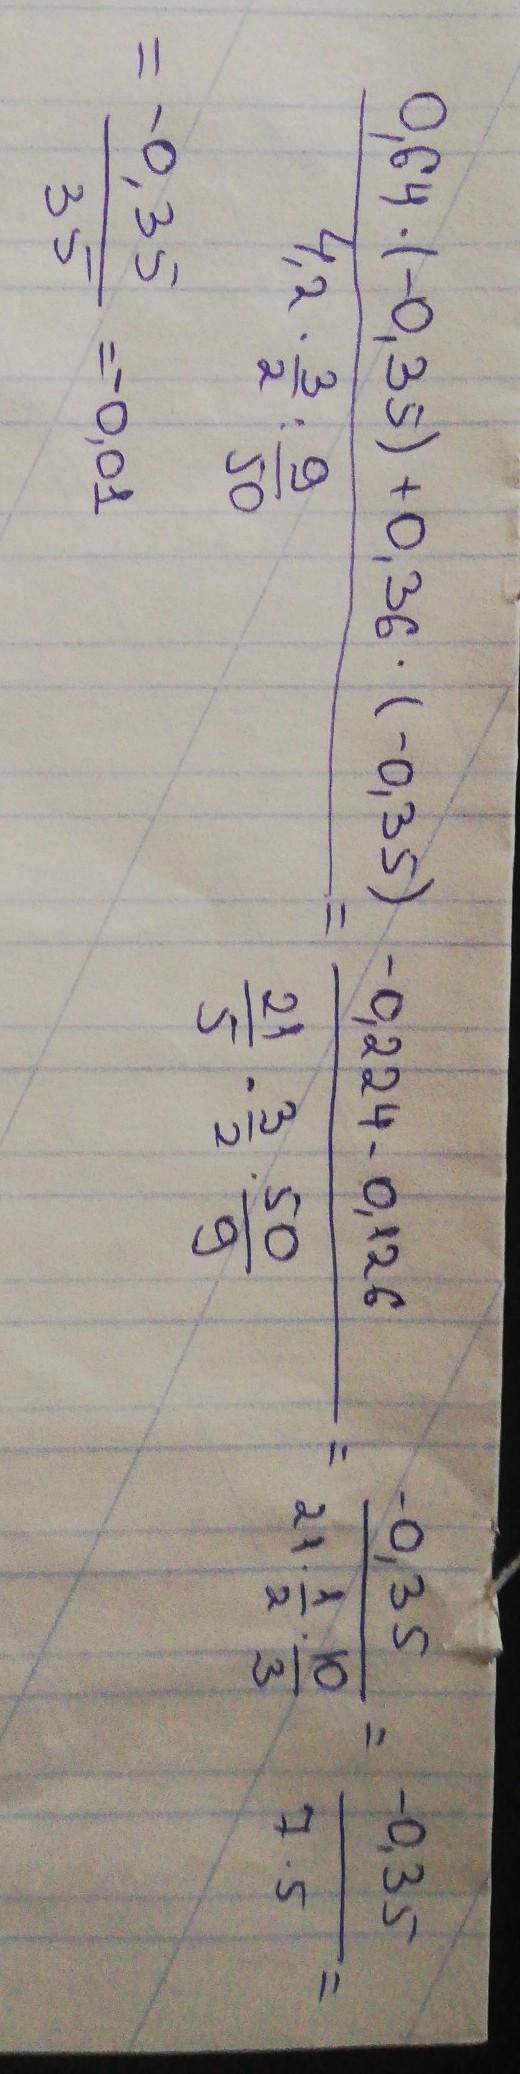 0,64·(-0,35)+0,36·(-0,35) / 4,2·3/2:9/50 = -0,224-0,126 / 21/5·3/2·50/9 = -0,35 / 21·1/2·10/3 = -0,35 / 7·5 =
= -0,35 / 35 = -0,01